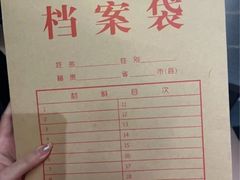 档案袋
姓名 性别
籍贯 省 市(县)
材料目次
1 11
2 12
3 13
4 14
5 15
6 16
7 17
8 18